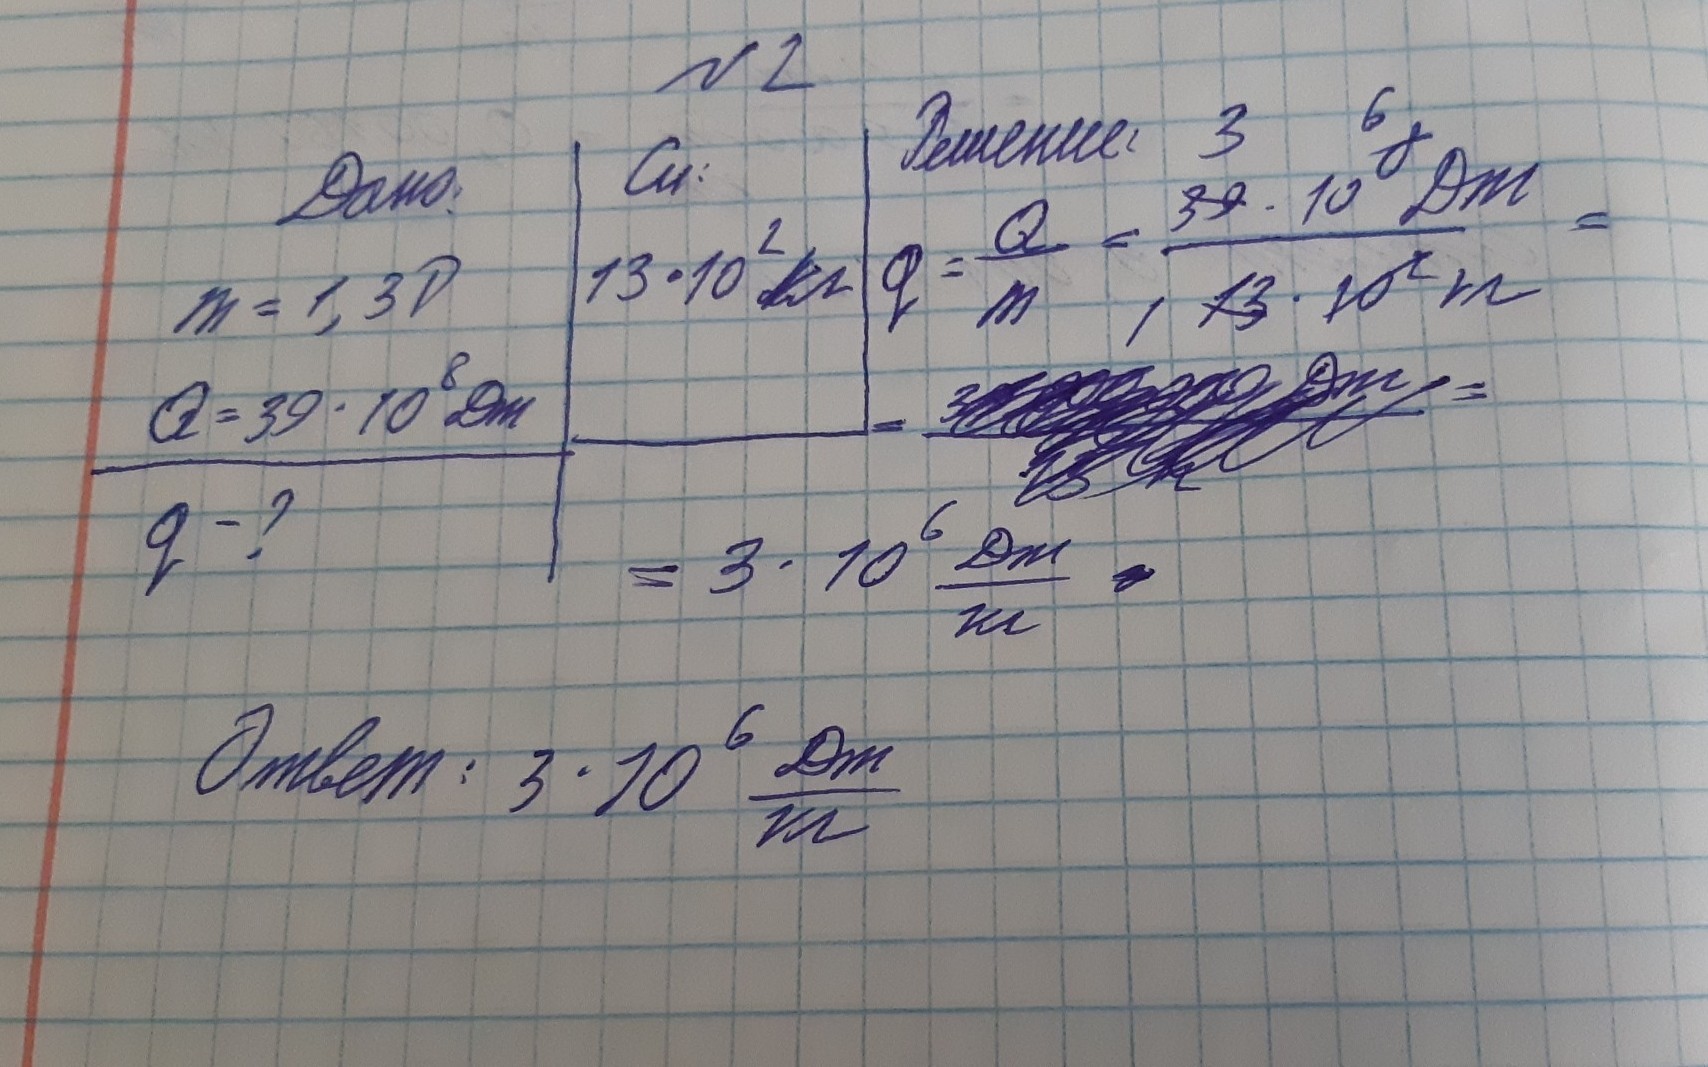 №2
Дано:
m = 1,3т
Q = 39 · 10⁸ Дж
q - ?
Си:
13 · 10² кг
Решение:
q = Q/m = 39 · 10⁸ Дж / 13 · 10² кг =
3 6
=
=
= 3 · 10⁶ Дж/кг
Ответ: 3 · 10⁶ Дж/кг